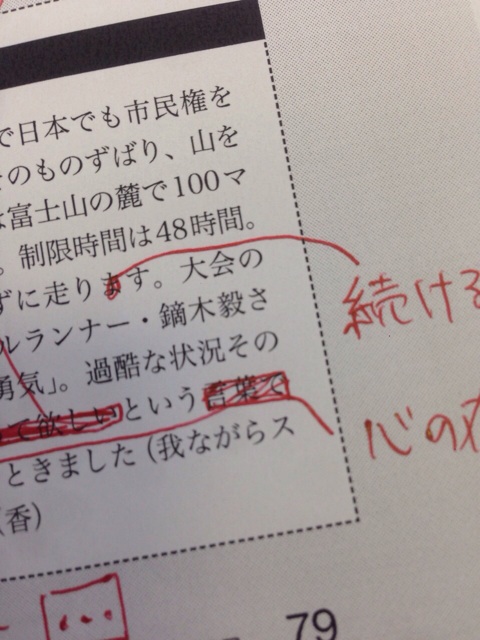 で日本でも市民権を
そのものずばり、山を
は富士山の麓で100マ
。制限時間は48時間。
ずに走ります。大会の
ルランナー・鏑木毅さ
勇気」。過酷な状況その
て欲しいという言葉で
ときました（我ながらス
（香）
続ける
心の
…
79